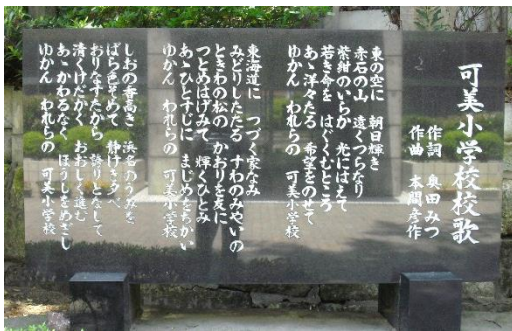 可美小学校校歌
作詞 奥田みつ
作曲 本間彦作
東の空に 朝日輝き
赤石の山 遠くつらなり
紫紺のいらか 光にはえて
若き命を はぐくむところ
あゝ洋々たる 希望をのせて
ゆかん われらの 可美小学校
東海道に つづく家なみ
みどりしたたる すわのみやいの
ときわの松の かおりを友に
つとめはげみて 輝くひとみ
あゝひとすじに まじめをちかい
ゆかん われらの 可美小学校
しおの香高き 浜名のうみを
ばら色そめて 静けき夕べ
おりなすたから 誇りとなして
清くけだかく おおしく進む
あゝかわるなく ほうしをめざし
ゆかん われらの 可美小学校